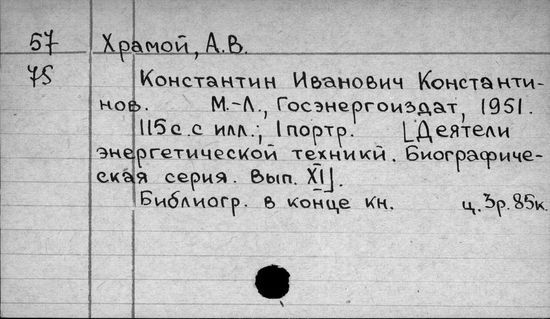 57 Храмой, А.В.
75 Константин Иванович Константи-
нов. М.-Л., Госэнергоиздат, 1951.
115 с. с илл.; 1 портр. [Деятели
энергетической техники. Биографиче-
ская серия. Вып. XI].
Библиогр. в конце кн. ц. 3р. 85к.